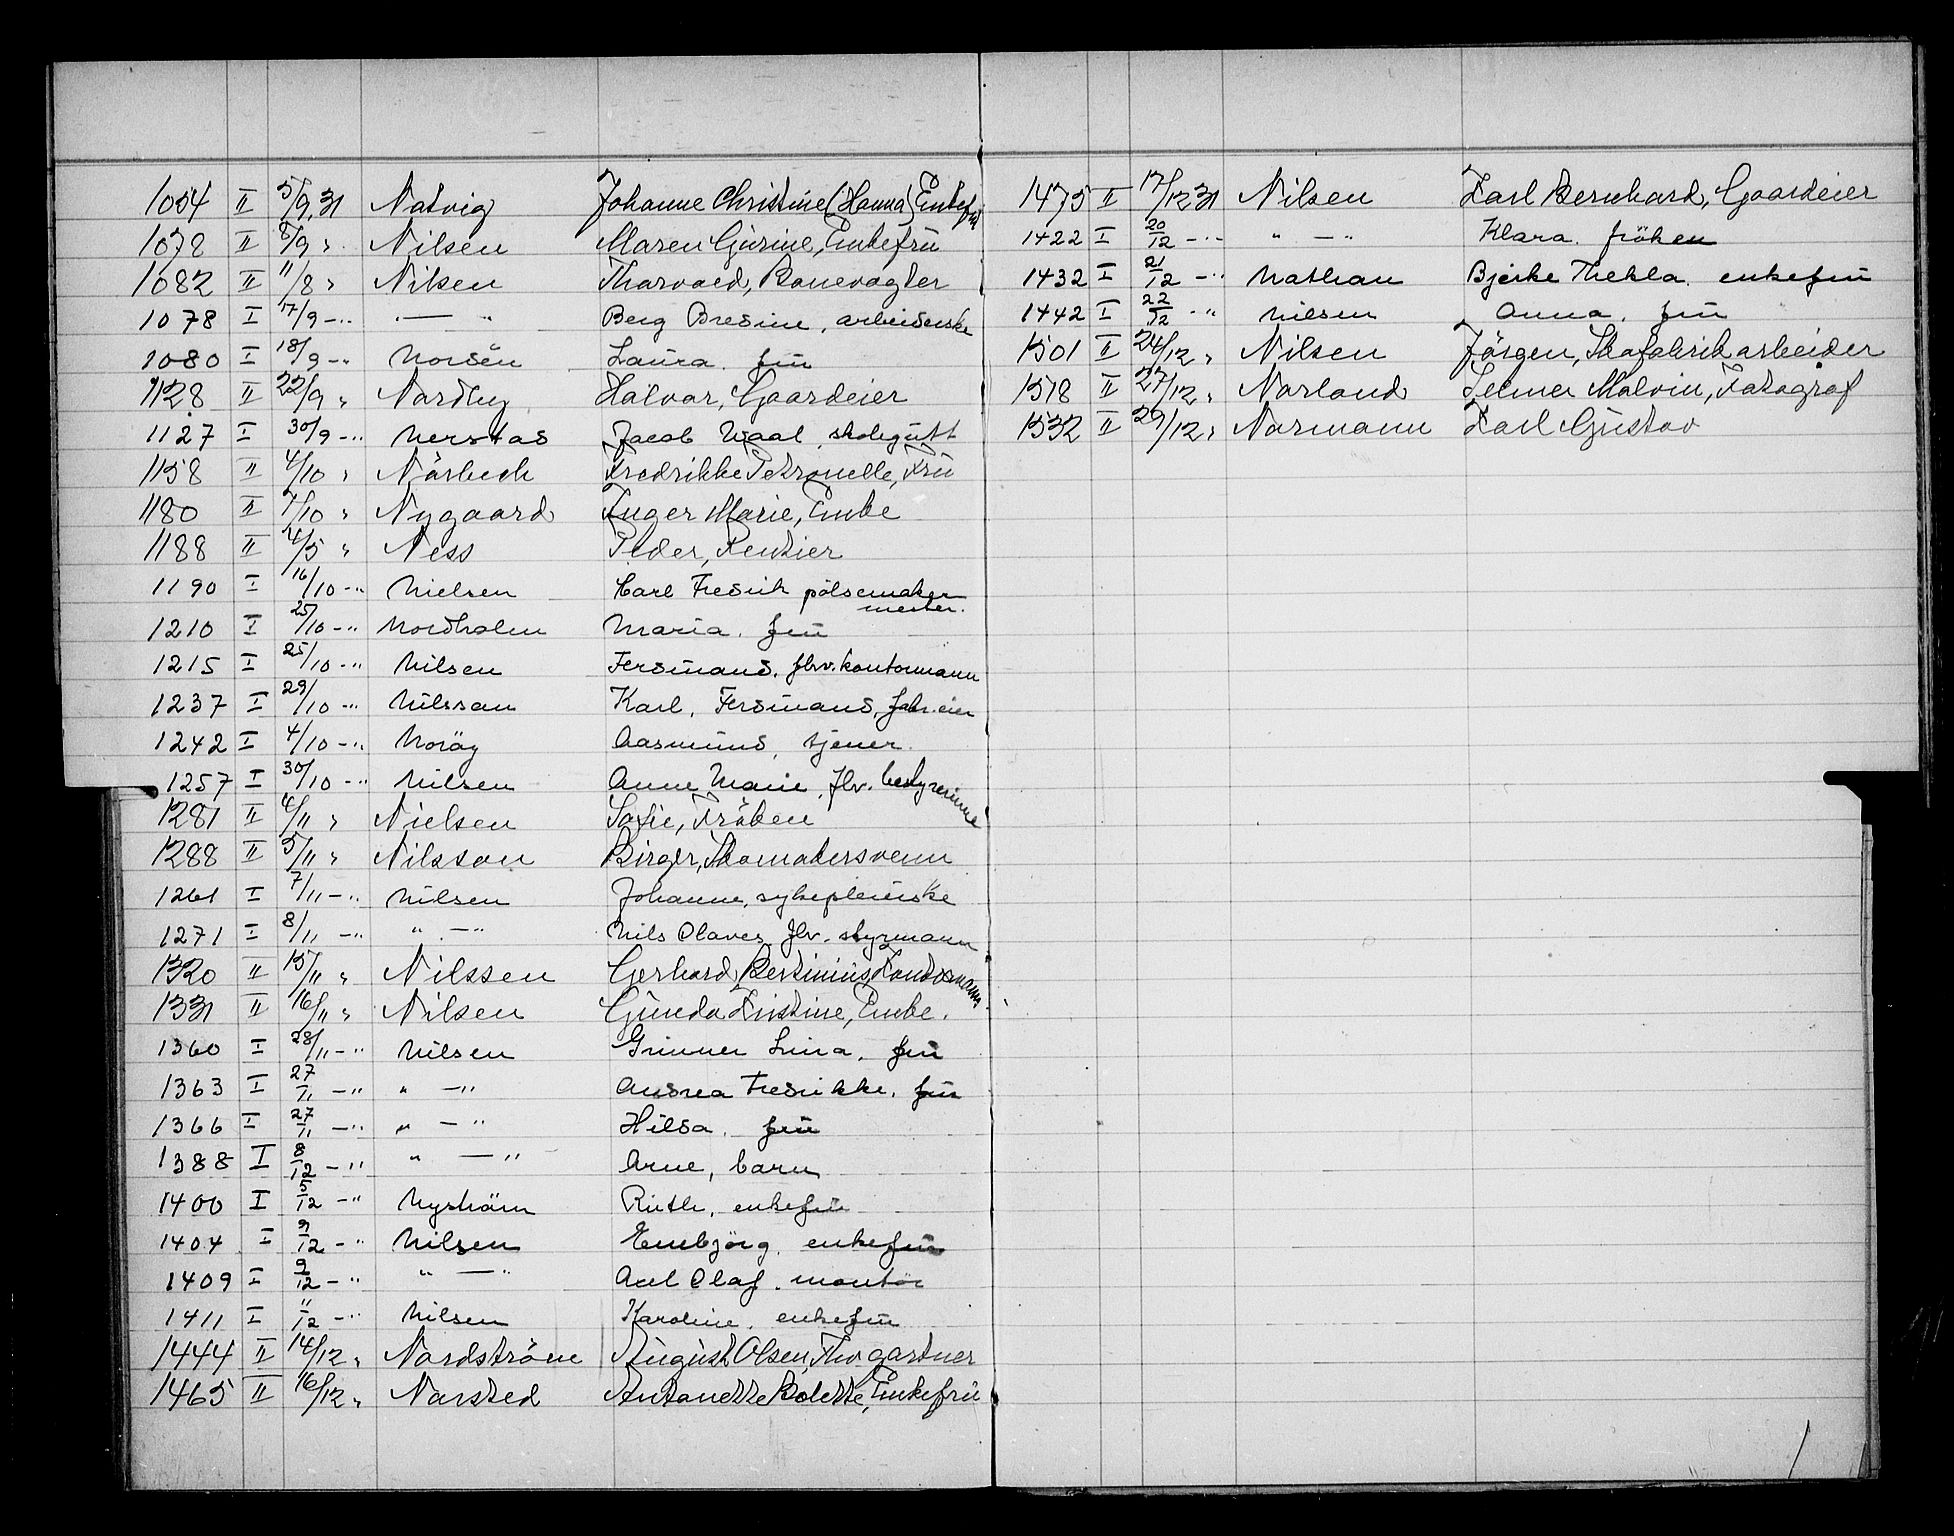 1054 II 5/9.31 Natvig Johanne Christine (Hanna) Enkefru
1078 II 8/9 " Nilsen Maren Gurine, Enkefru
1082 II 11/8 " Nilsen Tharvald, Banevogter
1078 I 17/9 -" — " Berg Bredine, arbeiderske
1080 I 18/9 -" Nordén Laura. fru
1128 II 22/9 " Nordby Halvar, Gaardeier
1127 I 30/9 -" Nerstad Jacob Waal, skolegutt
1158 II 4/10 " Nörbech Fredrikke Petronelle, Fru
1180 II 7/10 " Nygaard Inger Marie, Enke
1188 II 4/5 " Ness Peder, Rentier
1190 I 16/10 -" Nielsen Carl Fredrik pölsemaker
mester.
1210 I 25/10 -" Nordholm Maria. fru
1215 I 25/10 -" Nilsen Ferdinand. fhv. kontormann
1237 I 29/10 -" Nilsson Karl, Ferdinand, fabr. eier
1242 I 4/10 -" Noröy Aasmund, tjener.
1257 I 30/10 -" Nilsen Anne Marie, fhv. bestyrerinne
1281 II 4/11 " Nielsen Sofie, Fröken
1288 II 5/11 " Nilsson Birger, Skomakersvenn
1261 I 7/11 -" Nilsen Johanne, sykepleierske
1271 I 8/11 -" " — " Nils Olaves fhv. styrmann
1320 II 15/11 " Nilssen Gerhard Bertinius, Kontormann
1331 II 16/11 " Nilsen Gunda Kristine, Enke.
1360 I 28/11 -" Nilsen Grinner Lina. fru
1363 I 27/11 -" " — " Andrea Fredrikke. fru
1366 I 27/11 -" " — " Hilda. fru
1388 I 8/12 -" " — " Arne, barn
1400 I 5/12 -" Nyström Ruth, enkefru
1404 I 9/12 -" Nilsen Enebjörg. enkefru
1409 I 9/12 -" " — " Axel Olaf. montör
1411 I 11/12 -" Nilsen Karoline. enkefru
1444 II 14/12 " Nordström August Olsen, Fhv gartner
1465 II 16/12 " Norsted Antonette Bolette, Enkefru
1475 II 17/12 31 Nilsen Karl Bernhard, Gaardeier
1422 I 20/12 -" " — " Klara. fröken
1432 I 21/12 -" Nathan Bjerke Thekla. enkefru
1442 I 22/12 -" Nilsen Anna. fru
1501 II 24/12 " Nilsen Jörgen, Skofabrikarbeider
1518 II 27/12 " Norland Selmer Malvin, Fotograf
1532 II 29/12 " Normann Karl Gustav